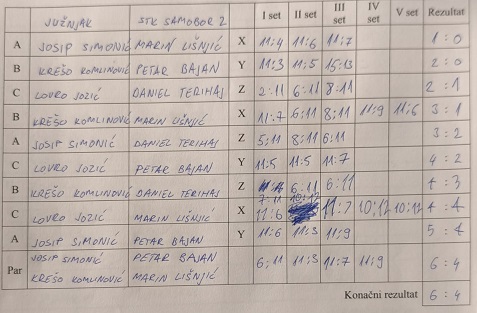 JUŽNJAK STK SAMOBOR 2 I set II set III set IV set V set Rezultat
A JOSIP SIMONIĆ MARIN LIŠNJIĆ X 11:4 11:6 11:7 1:0
B KREŠO KOMLINOVIĆ PETAR BAJAN Y 11:3 11:5 15:13 2:0
C LOVRO JOZIĆ DANIEL TERIHAJ Z 2:11 6:11 8:11 2:1
B KREŠO KOMLINOVIĆ MARIN LIŠNJIĆ X 11:7 6:11 8:11 11:9 11:6 3:1
A JOSIP SIMONIĆ DANIEL TERIHAJ Z 5:11 8:11 6:11 3:2
C LOVRO JOZIĆ PETAR BAJAN Y 11:5 11:5 11:7 4:2
B KREŠO KOMLINOVIĆ DANIEL TERIHAJ Z 7:11 6:11 6:11 4:3
C LOVRO JOZIĆ MARIN LIŠNJIĆ X 11:6 10:12 11:7 10:12 10:12 4:4
A JOSIP SIMONIĆ PETAR BAJAN Y 11:6 11:3 11:9 5:4
Par JOSIP SIMONIĆ PETAR BAJAN 6:11 11:3 11:7 11:9 6:4
KREŠO KOMLINOVIĆ MARIN LIŠNJIĆ
Konačni rezultat 6:4